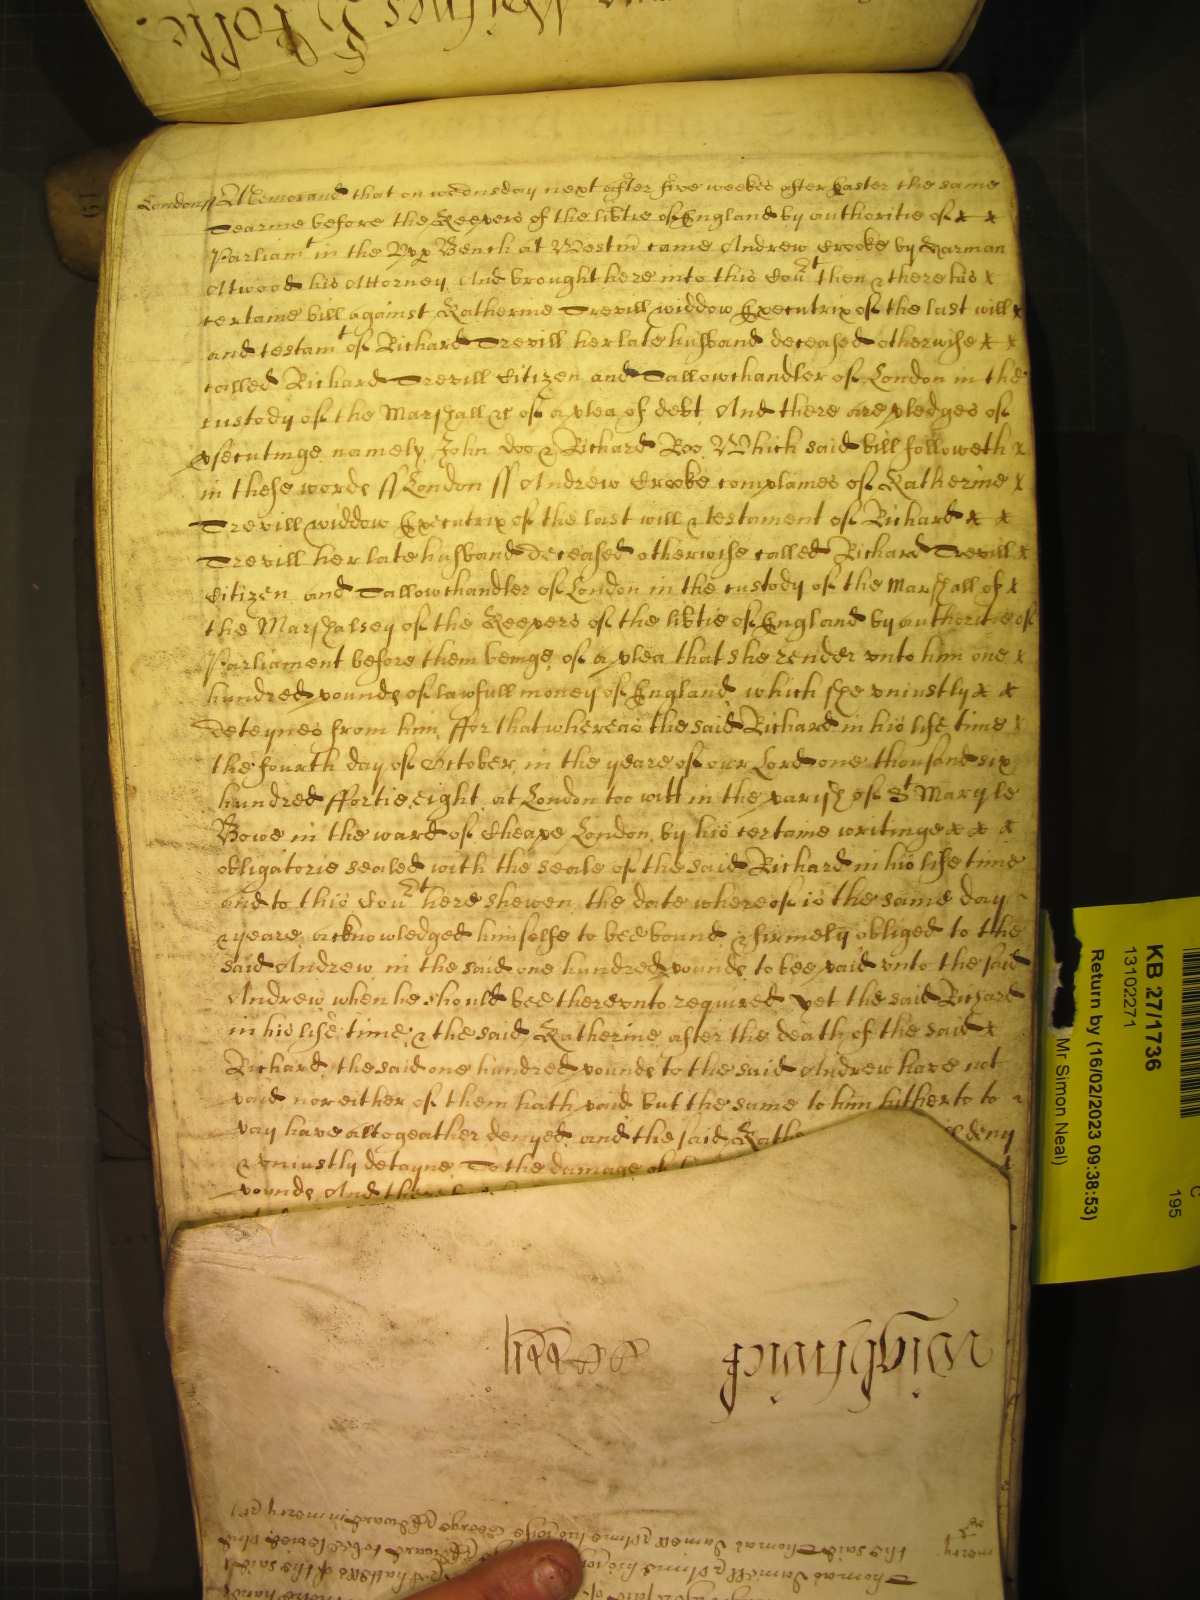 London ss Memorand that on wednsday next after five weekes after Easter the same
Tearme before the Keepers of the libtie of England by authoritie of x x
Parliamt in the Upp Bench at Westm came Andrew Crooke by Harman
Atwood his Attorney And brought here into this Court then & there his x
certaine bill against Katherine Trevill widdow Executrix of the last will x
and testamt of Richard Trevill her late husband deceased otherwise x x
called Richard Trevill Citizen and Tallowchandler of London in the
custody of the Marshall &c of a plea of debt And there are pledges of
psecutinge namely John Doo & Richard Roo Which said bill followeth x
in these words ss London ss Andrew Crooke complaines of Katherine x
Trevill widdow Executrix of the last will & testament of Richard x x
Trevill her late husband deceased otherwise called Richard Trevill x
Citizen and Tallowchandler of London in the custody of the Marshall of x
the Marshalsey of the Keepers of the libtie of England by authoritie of
Parliament before them beinge of a plea that she render unto him one x
hundred pounds of lawfull money of England which she uniustly x x
deteynes from him ffor that whereas the said Richard in his life time x
the fourth day of October in the yeare of our Lord one thousand six
hundred ffortie eight at London too witt in the parish of St Mary le
Bowe in the ward of Cheape London by his certaine writinge x x x
obligatorie sealed with the seale of the said Richard in his life time
and to this Court here shewen the date whereof is the same day
& yeare acknowledged himselfe to bee bound & firmely obliged to the
said Andrew in the said one hundred pounds to bee paid unto the said
Andrew when he should bee thereunto required yet the said Richard
in his life time & the said Katherine after the death of the said x
Richard the said one hundred pounds to the said Andrew have not
paid nor either of them hath paid but the same to him hitherto to
pay have altogeather denyed and the said Kathe deny
& uniustly detayne To the damage of
pounds And
Wightwick
KB 27/1736
13102271
Return by (16/02/2023 09:38:53)
Mr Simon Neal)
C
195